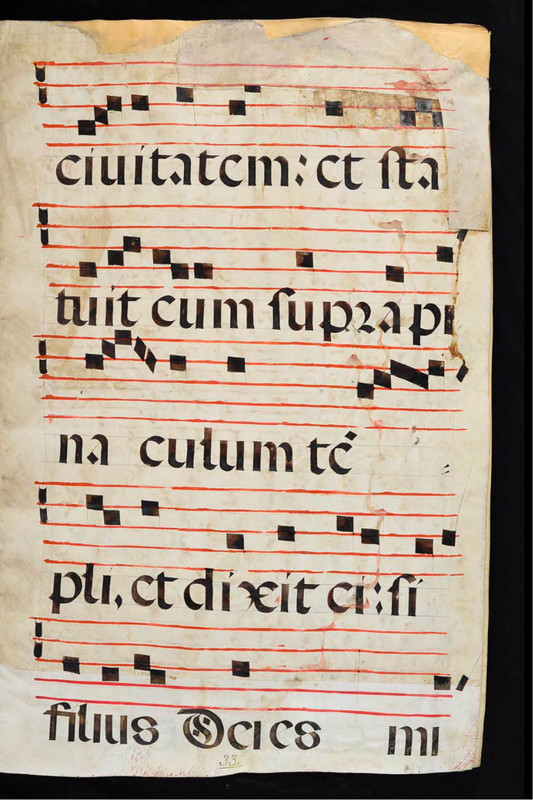 ciuitatem: et sta
tuit eum supra pi
na culum tē
pli, et dixit ei: si
filius Dei es mi
33